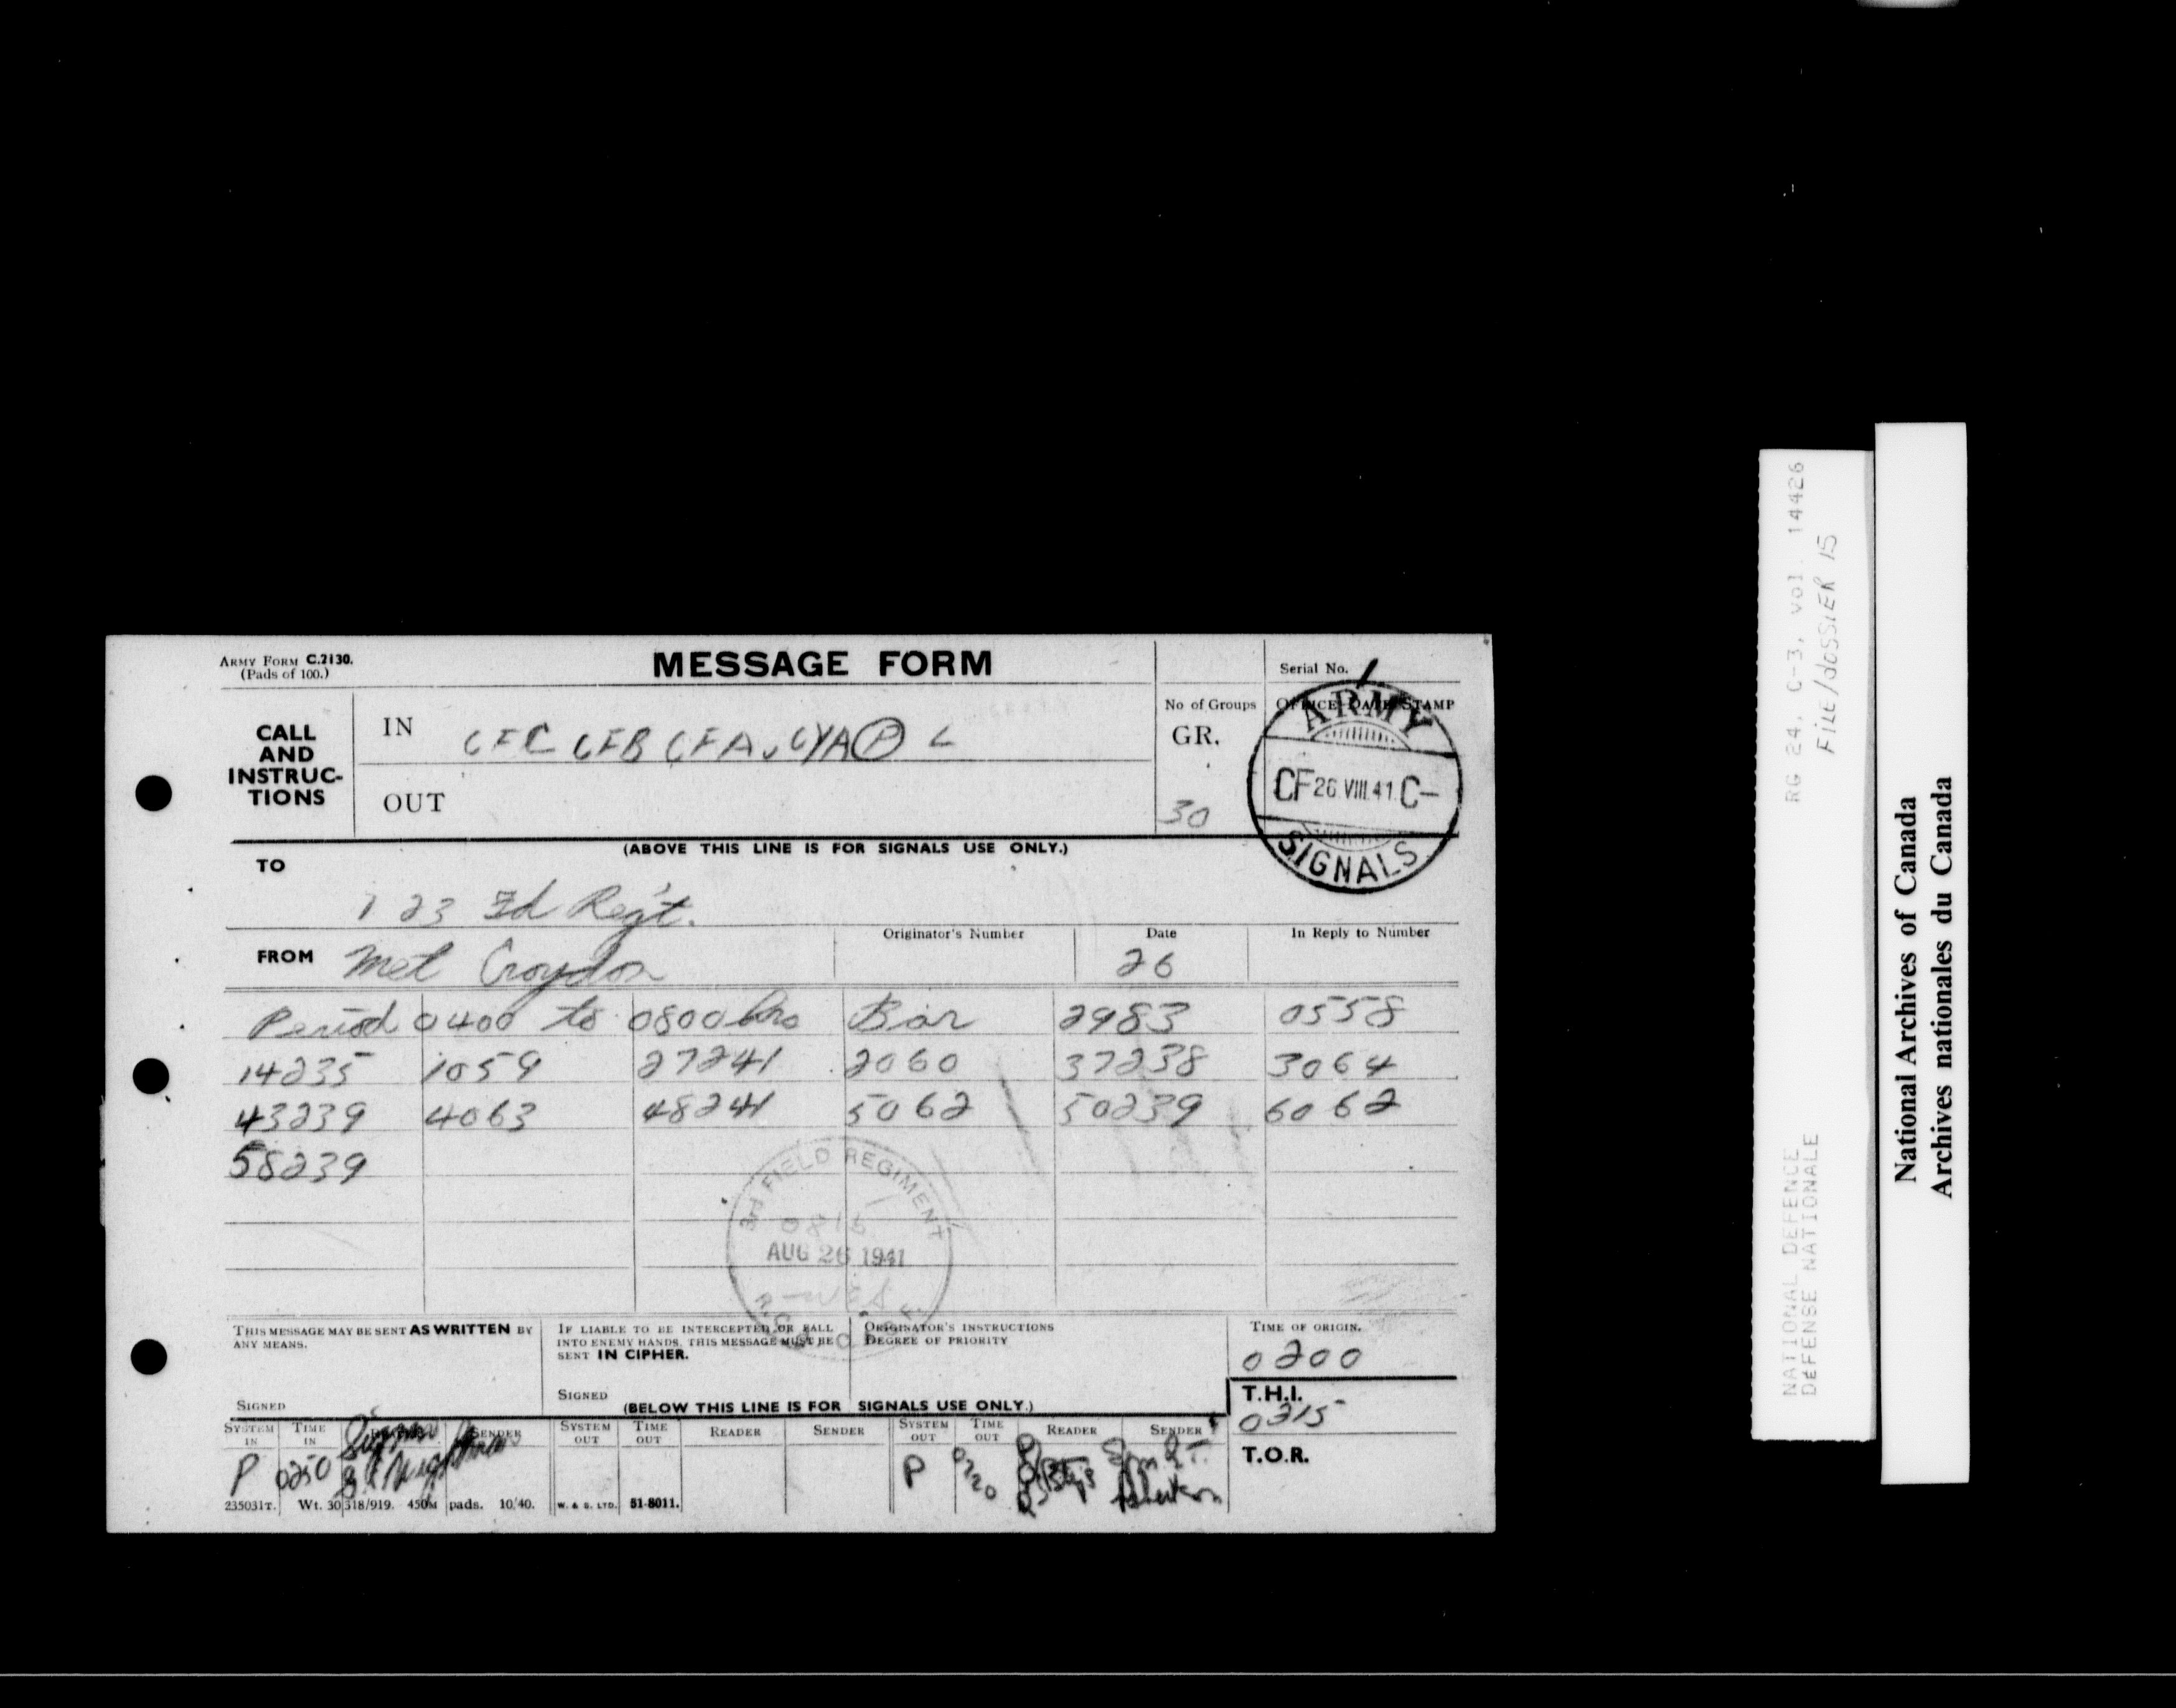 ARMY FORM C.2130.
(Pads of 100.)
MESSAGE FORM
Serial No. 1
CALL AND INSTRUCTIONS
IN CFC CFB CFA v CYA (P) L
OUT
No of Groups
GR.
30
OFFICE DATE STAMP
ARMY
CF 26.VIII.41 C-
SIGNALS
(ABOVE THIS LINE IS FOR SIGNALS USE ONLY.)
TO
1 23 Fd Reg't.
FROM Met Croydon
Originator's Number
Date
26
In Reply to Number
Period 0400 to 0800 hrs Bar 2983 0558
14235 1059 27241 2060 37238 3064
43239 4063 48241 5062 50239 6062
58239
3rd FIELD REGIMENT
0815
AUG 26 1941
THIS MESSAGE MAY BE SENT AS WRITTEN BY ANY MEANS.
SIGNED
IF LIABLE TO BE INTERCEPTED OR FALL INTO ENEMY HANDS, THIS MESSAGE MUST BE SENT IN CIPHER.
SIGNED
ORIGINATOR'S INSTRUCTIONS
DEGREE OF PRIORITY
TIME OF ORIGIN.
0200
T.H.I.
0315
T.O.R.
(BELOW THIS LINE IS FOR SIGNALS USE ONLY.)
SYSTEM IN TIME IN READER SENDER SYSTEM OUT TIME OUT READER SENDER SYSTEM OUT TIME OUT READER SENDER
P 0250 P
235031T. Wt. 30318/919. 450M pads. 10/40. W. & S. LTD. 51-8011.
RG 24, C-3, vol. 14426
FILE/DOSSIER 15
NATIONAL DEFENCE
DÉFENSE NATIONALE
National Archives of Canada
Archives nationales du Canada